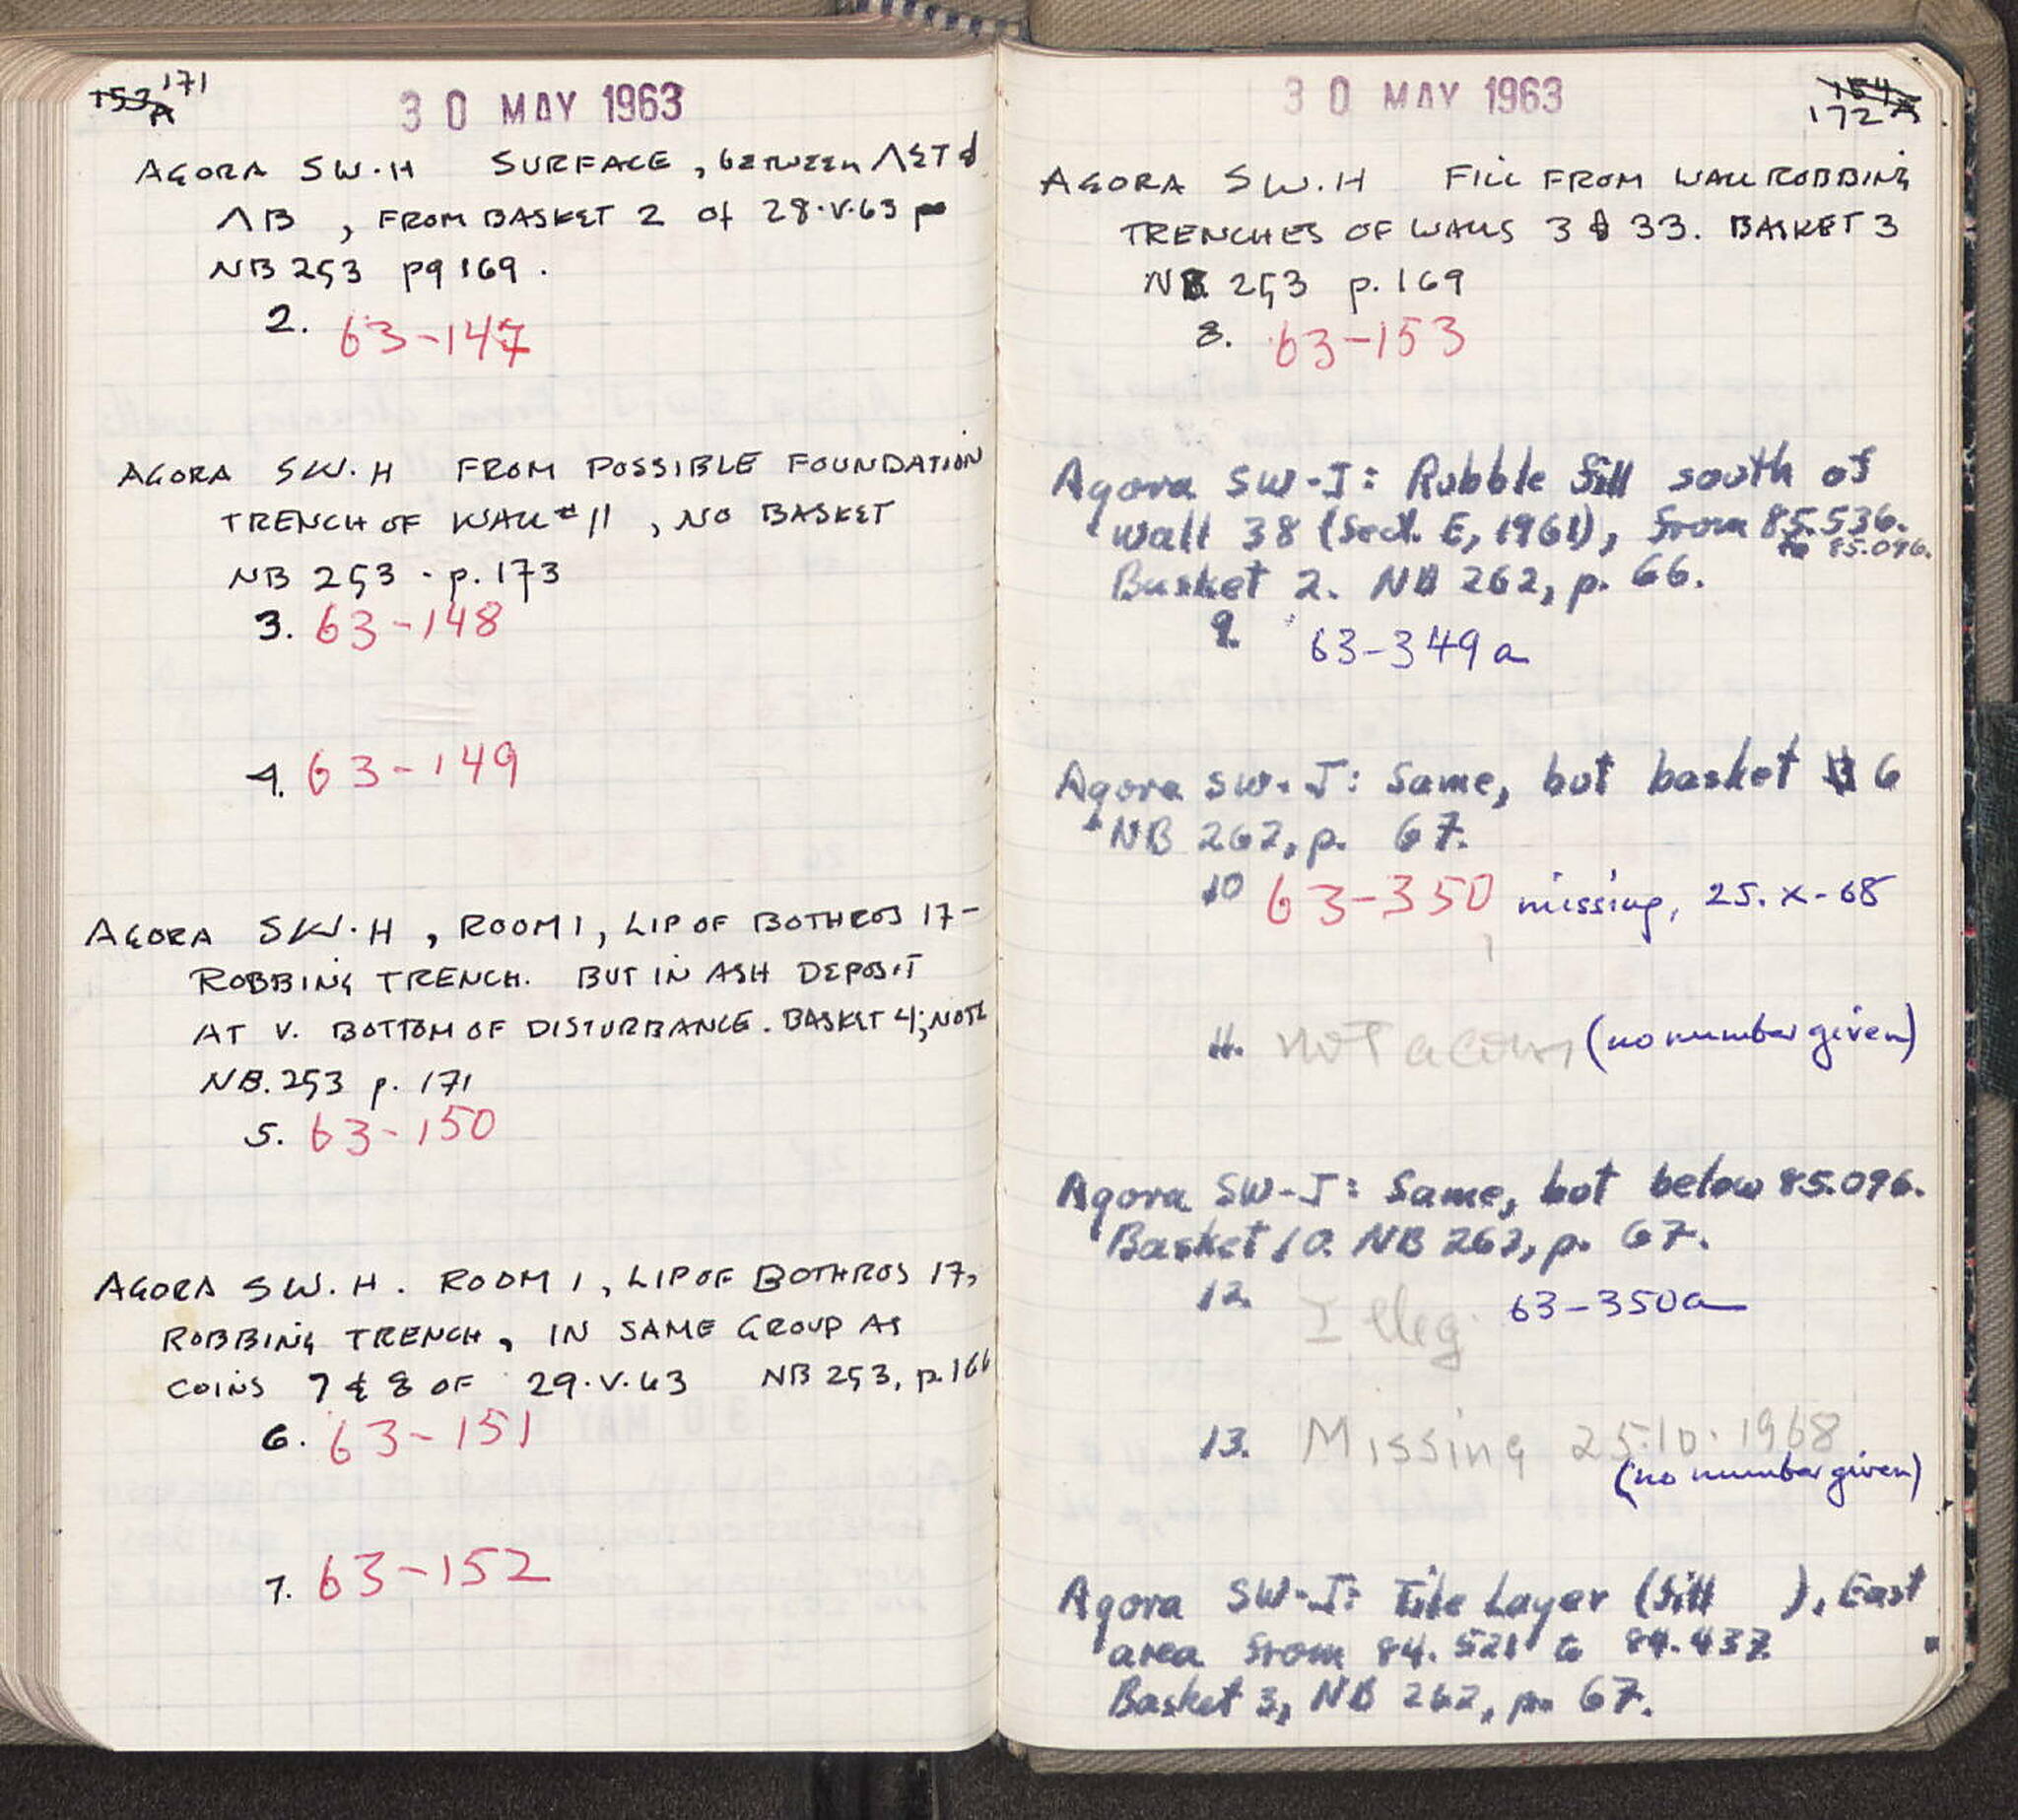 153A 171
30 MAY 1963
AGORA SW.H SURFACE, between ΛΣΤ &
ΛΒ, FROM BASKET 2 of 28.V.63
NB 253 pg 169.
2. 63-147
AGORA SW.H FROM POSSIBLE FOUNDATION
TRENCH OF WALL #11, NO BASKET
NB 253 - p. 173
3. 63-148
4. 63-149
AGORA SW.H, ROOM 1, LIP OF BOTHROS 17 -
ROBBING TRENCH. BUT IN ASH DEPOSIT
AT V. BOTTOM OF DISTURBANCE. BASKET 4; NOTE
NB. 253 p. 171
5. 63-150
AGORA SW.H. ROOM 1, LIP OF BOTHROS 17,
ROBBING TRENCH, IN SAME GROUP AS
COINS 7 & 8 OF 29.V.63 NB 253, p. 166
6. 63-151
7. 63-152
30 MAY 1963
154A
172
AGORA SW.H FILL FROM WALL ROBBING
TRENCHES OF WALLS 3 & 33. BASKET 3
NB 253 p. 169
8. 63-153
Agora SW-J: Rubble fill south of
wall 38 (Sect. E, 1961), from 85.536.
to 85.096.
Basket 2. NB 262, p. 66.
9. 63-349a
Agora SW-J: Same, but basket 6
NB 262, p. 67.
10 63-350 missing, 25.X-68
11. not a coin (no number given)
Agora SW-J: Same, but below 85.096.
Basket 10. NB 262, p. 67.
12. Illeg. 63-350a
13. Missing 25.10.1968
(no number given)
Agora SW-J: Tile Layer (fill ), East
area from 84.521 to 84.437
Basket 3, NB 262, p. 67.